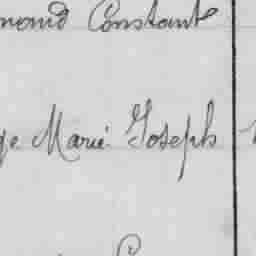 mond Constant
ge Marie Joseph